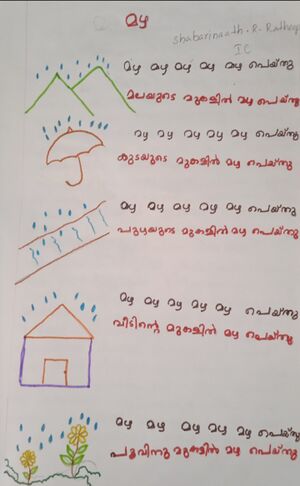 മഴ
shabarinaath. R. Ratheesh
I C
മഴ മഴ മഴ മഴ മഴ പെയ്തു
മലയുടെ മുകളിൽ മഴ പെയ്തു
മഴ മഴ മഴ മഴ മഴ പെയ്തു
കുടയുടെ മുകളിൽ മഴ പെയ്തു
മഴ മഴ മഴ മഴ മഴ പെയ്തു
പുഴയുടെ മുകളിൽ മഴ പെയ്തു
മഴ മഴ മഴ മഴ മഴ പെയ്തു
വീടിന്റെ മുകളിൽ മഴ പെയ്തു
മഴ മഴ മഴ മഴ മഴ പെയ്തു
പൂവിന്നു മുകളിൽ മഴ പെയ്തു